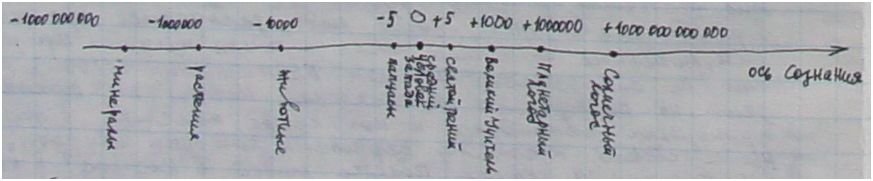 -1000 000 000 -1000000 -10000 -5 0 +5 +1000 +1000000 +1000 000 000 000
ось Сознания
минералы
растения
животные
папуасы
средний
человек
запада
святой, гений
Великий Учитель
Планетарный
логос
Солнечный
логос